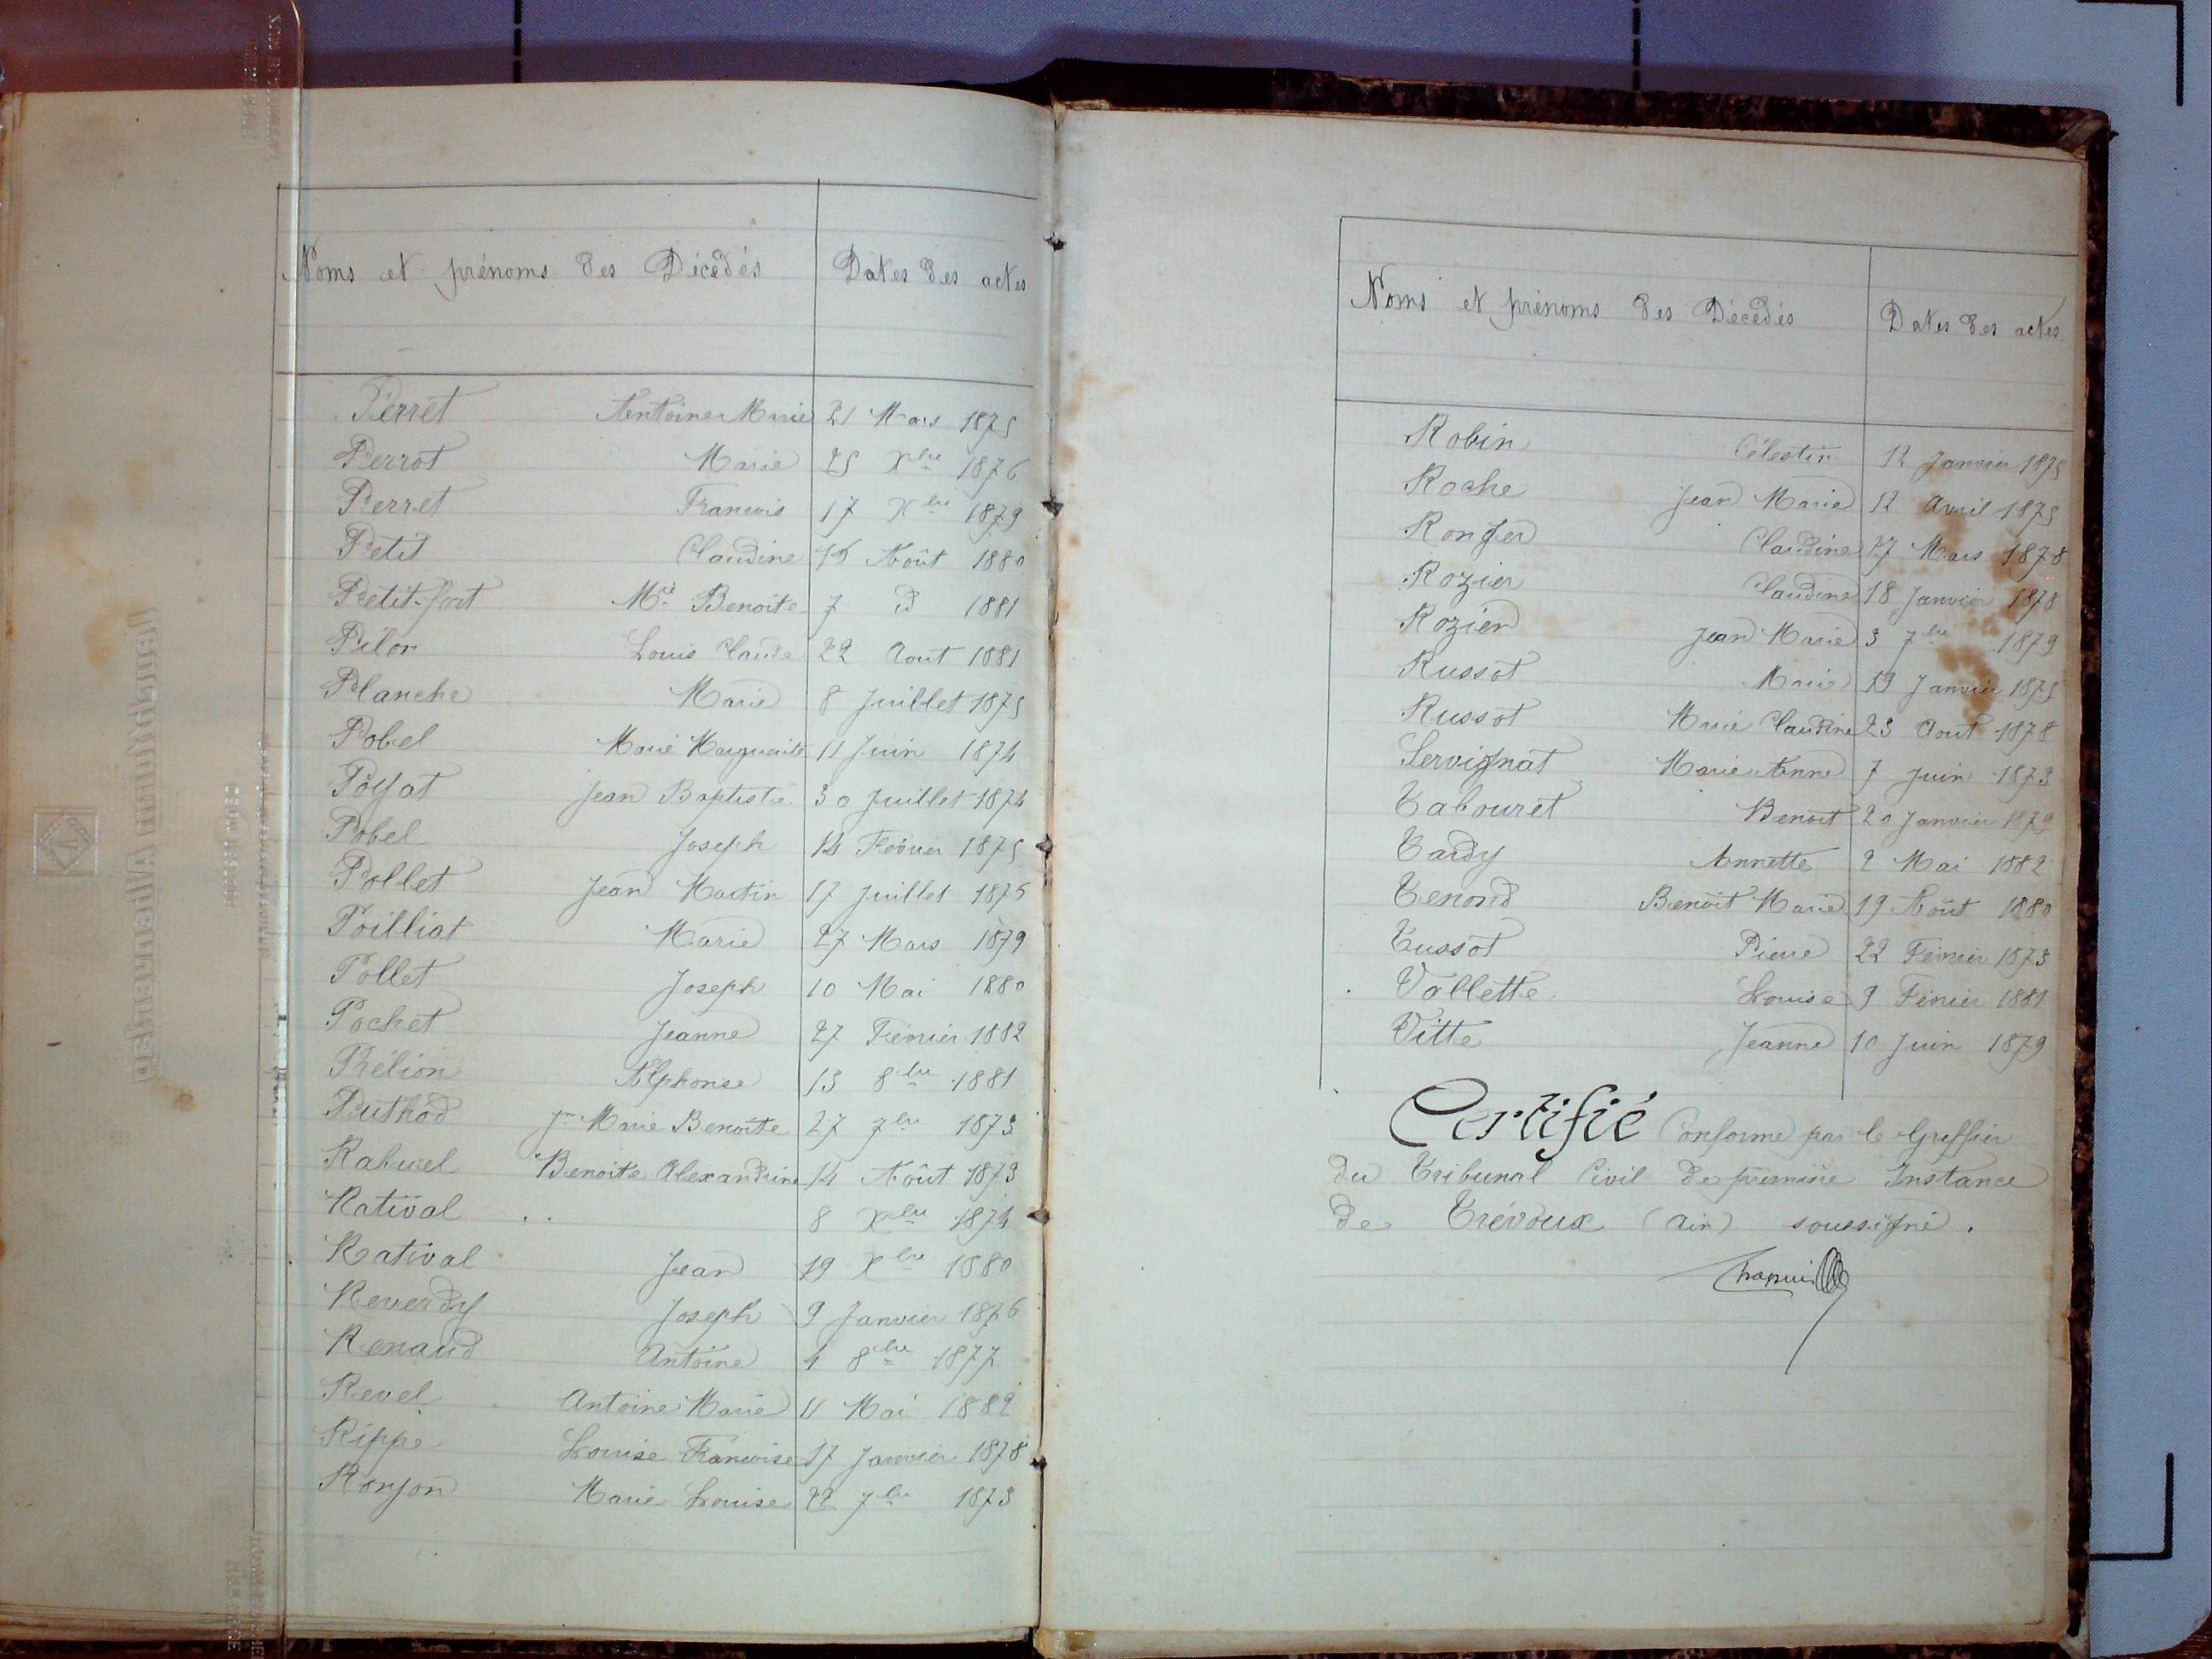 Noms et prénoms des Décédés Dates des actes
Perret Antoine Marie 21 Mars 1875
Perrot Marie 25 Xbre 1876
Perret Francois 17 Xbre 1879
Petit Claudine 15 Août 1880
Petit-fort Mie Benoite 7 d 1881
Pilon Louis Claude 22 Aout 1881
Planche Marie 8 Juillet 1875
Pobel Marie Marguerite 11 Juin 1874
Poyat Jean Baptiste 30 Juillet 1874
Pobel Joseph 14 Février 1875
Pollet Jean Martin 17 Juillet 1876
Poilliat Marie 27 Mars 1879
Pollet Joseph 10 Mai 1880
Pochet Jeanne 27 Février 1882
Prélion Alphonse 13 8bre 1881
Puthod Jne Marie Benoîte 27 7bre 1873
Rabuel Benoite Alexandrine 14 Août 1873
Ratival .. 8 Xbre 1874
Ratival Jean 19 Xbre 1880
Reverdy Joseph 9 Janvier 1876
Renaud Antoine 4 8bre 1877
Revel Antoine Marie 11 Mai 1882
Rippe Louise Francoise 17 Janvier 1878
Ronjon Marie Louise 22 7bre 1873
Noms et prénoms des Décédés Dates des actes
Robin Célestin 12 Janvier 1875
Roche Jean Marie 12 Avril 1875
Ronger Claudine 27 Mars 1878
Rozier Claudine 18 Janvier 1878
Rozier Jean Marie 3 7bre 1879
Russot Marie 19 Janvier 1875
Russot Marie Claudine 23 Aout 1878
Servignat Marie Anne 7 Juin 1873
Tabouret Benoit 20 Janvier 1879
Tardy Annette 2 Mai 1882
Tenond Benoît Marie 19 Août 1880
Tussot Pierre 22 Février 1873
Vallette Louise 9 Février 1881
Vitte Jeanne 10 Juin 1879
Certifié Conforme par le Greffier
du Tribunal Civil de première Instance
de Trévoux (Ain) soussigné.